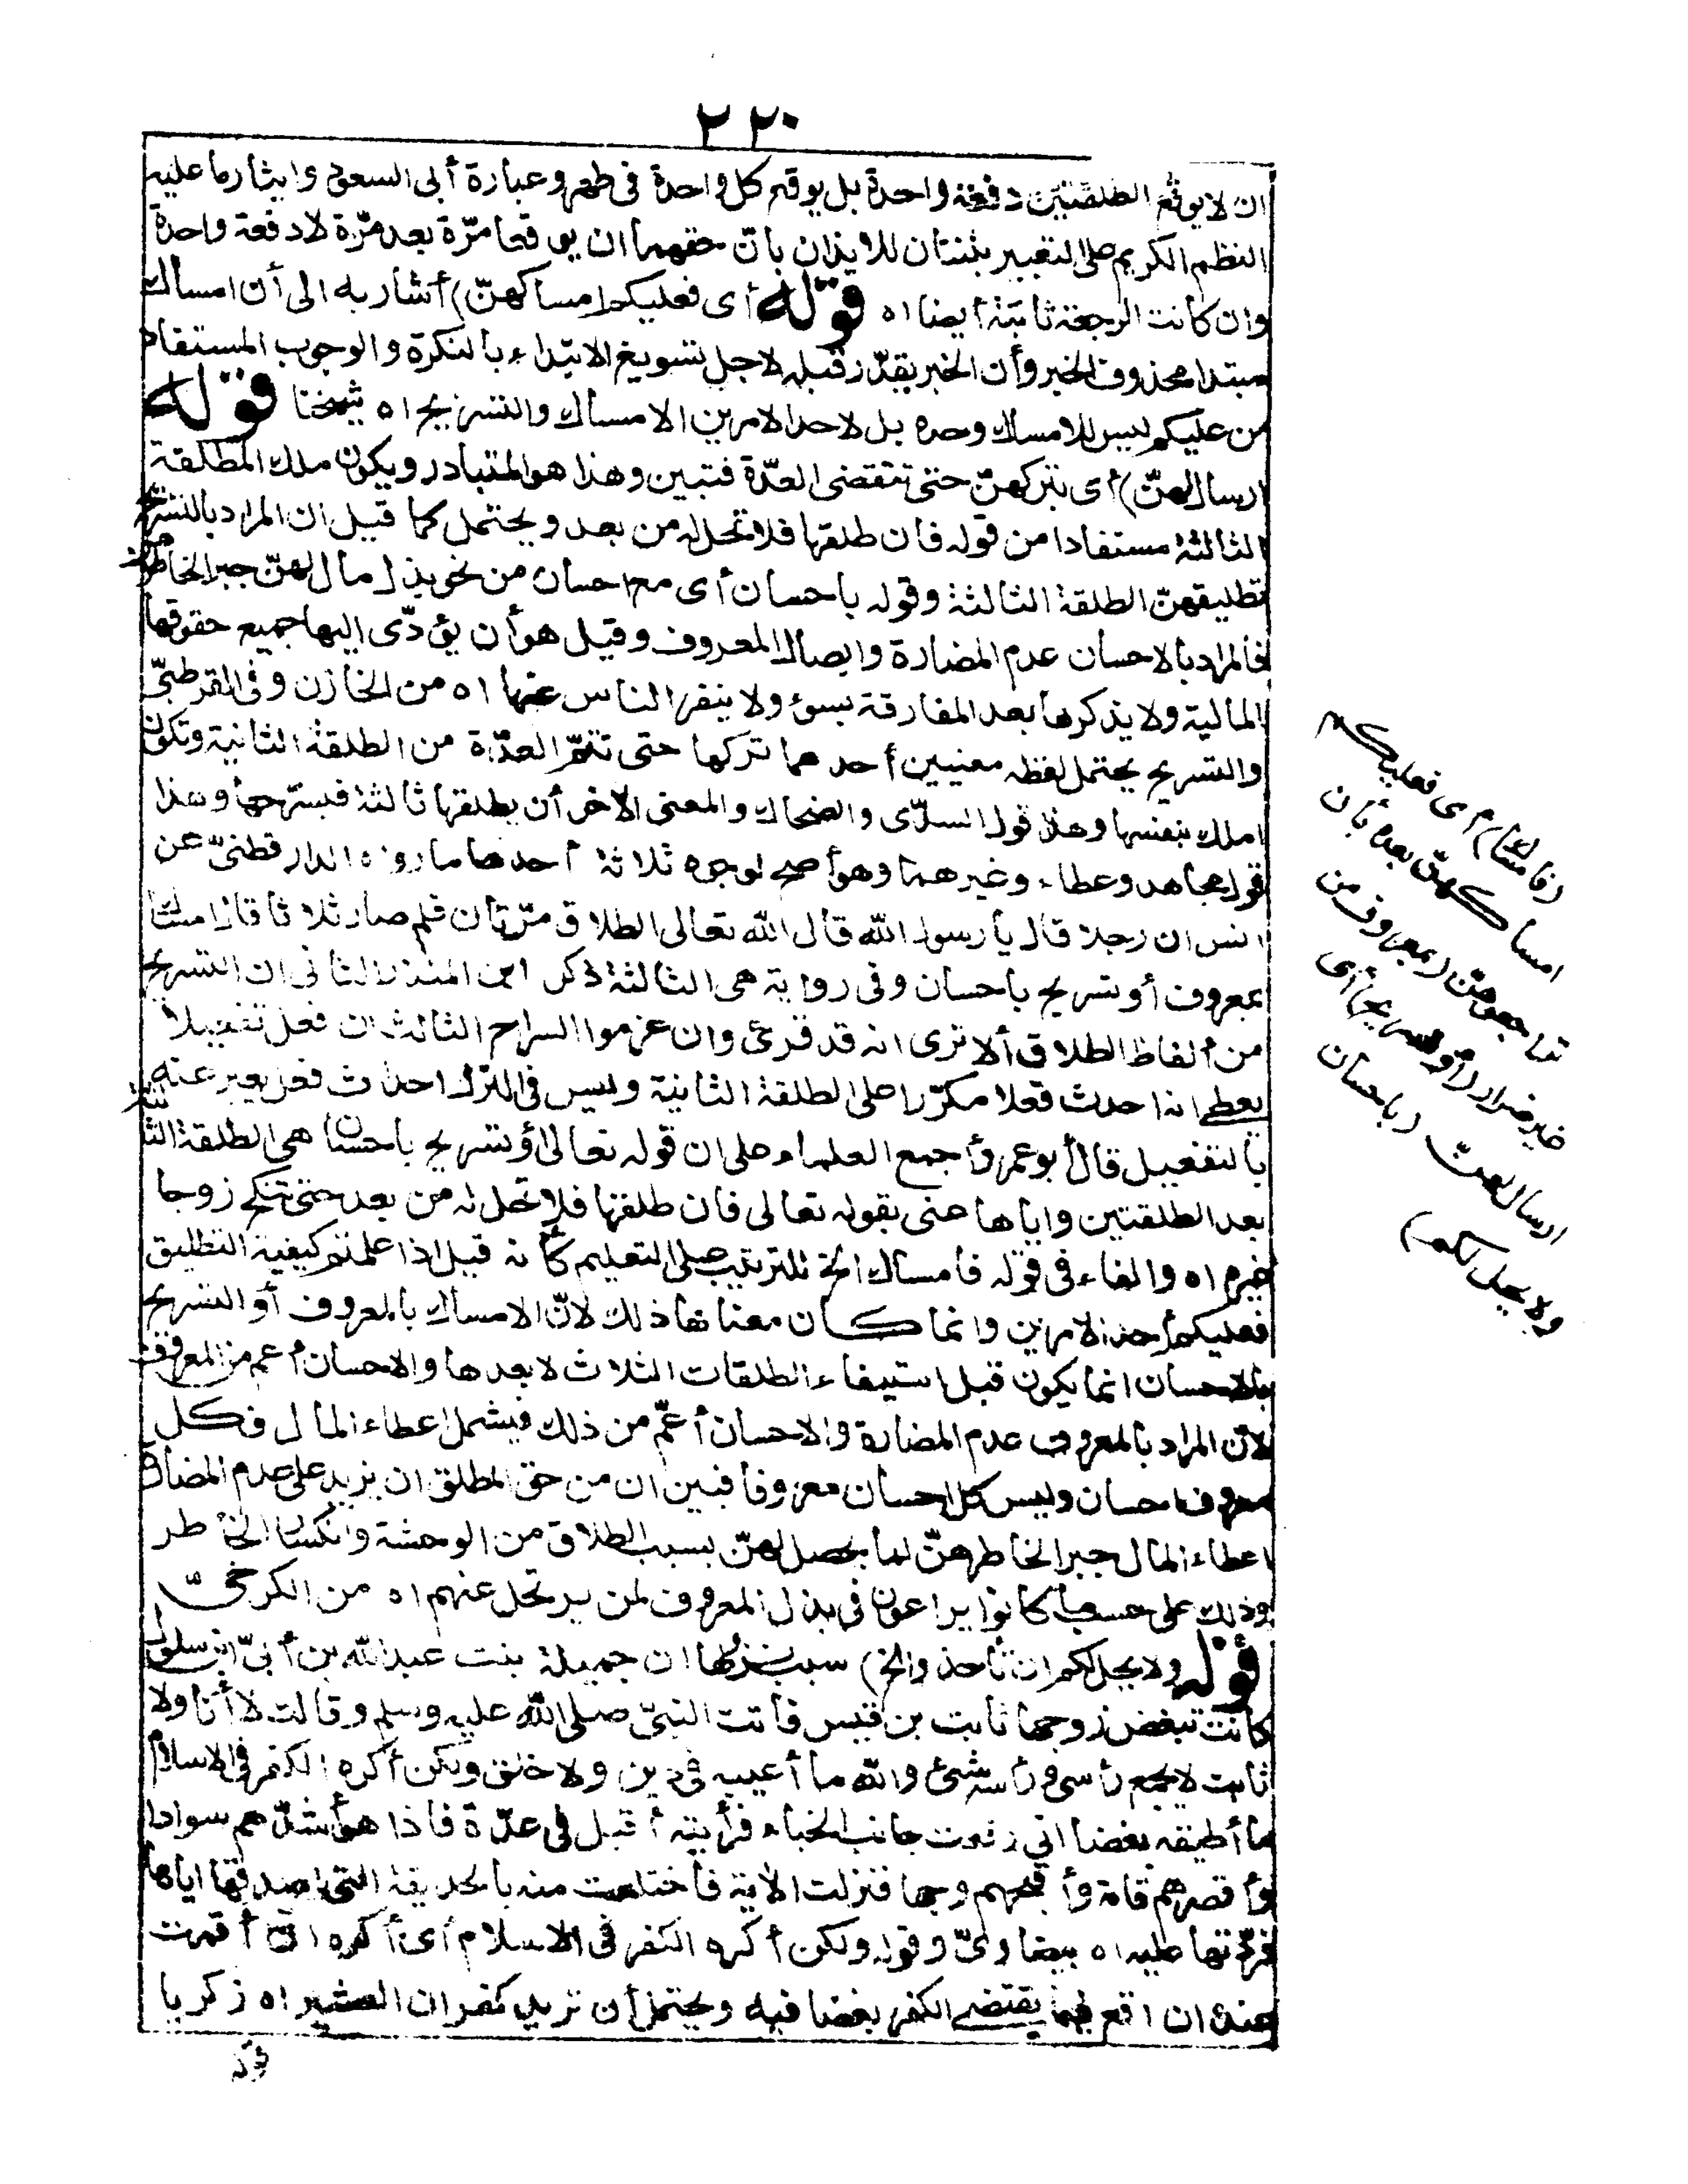 ٢٢٠
ان لا يوقع الطلقتين دفعة واحدة بل يوقع كل واحدة فى طهر وعبارة أبى السعود وايثار ما عليه
النظم الكريم على التعبير بثنتان للايذان بأنّ حقهما ان يوقعا مرّة بعد مرّة لا دفعة واحدة
وان كانت الرجعة ثابتة أيضا اه قوله أى فعليكم امساكهنّ) أشار به الى أن امساك
مبتدا محذوف الخبر وأن الخبر يقدّر قبله لاجل تسويغ الابتداء بالنكرة والوجوب المستفاد
من عليكم ليس للامساك وحده بل لاحد الامرين الامساك والتسريح اه شيخنا قوله
ارسال لهنّ) أى بتركهنّ حتى تنقضى العدّة فتبين وهذا هو المتبادر ويكون ملك المطلقة
الثالثة مستفادا من قوله فان طلقها فلا تحل له من بعد ويحتمل كما قيل ان المراد بالتسريح
تطليقهنّ الطلقة الثالثة وقوله باحسان أى مع احسان من نحو بذل مال لهنّ جبر الخاطرهنّ
فالمراد بالاحسان عدم المضارة وايصال المعروف وقيل هو أن يؤدّى اليها جميع حقوقها
المالية ولا يذكرها بعد المفارقة بسوء ولا ينفر الناس عنها اه من الخازن وفى القرطبىّ
والتسريح يحتمل لفظه معنيين أحدهما تركها حتى تتمّ العدّة من الطلقة الثانية وتكون
املك بنفسها وهذا قول السدّى والضحاك والمعنى الآخر أن يطلقها ثالثة فيسرّحها وهذا
قول مجاهد وعطاء وغيرهما وهو أصح لوجوه ثلاثة أحدها ما رواه الدارقطنىّ عن
انس ان رجلا قال يا رسول الله قال الله تعالى الطلاق مرّتان فلم صار ثلاثا قال امساك
بمعروف أو تسريح باحسان وفى رواية هى الثالثة ذكر ابن المنذر الثانى ان التسريح
من ألفاظ الطلاق ألا ترى انه قد قرئ وان عزموا السراح الثالث ان فعل تفعيلا
يعطى انه احدث فعلا مكرّرا على الطلقة الثانية وليس فى الترك احداث فعل يعبر عنه
بالتفعيل قال أبو عمر وأجمع العلماء على ان قوله تعالى أو تسريح باحسان هى الطلقة الثالثة
بعد الطلقتين واياها عنى بقوله تعالى فان طلقها فلا تحل له من بعد حتى تنكح زوجا
غيره اه والفاء فى قوله فامساك الخ للترتيب على التعليم كأنه قيل اذا علمتم كيفية التطليق
فعليكم أحد الامرين وانما كان معناها ذلك لانّ الامساك بالمعروف أو التسريح
بالاحسان انما يكون قبل استيفاء الطلقات الثلاث لا بعدها والاحسان أعم من المعروف
لانّ المراد بالمعروف عدم المضارة والاحسان أعمّ من ذلك فيشمل اعطاء المال فكل
معروف احسان وليس كل احسان معروفا فبين ان من حق المطلق ان يزيد على عدم المضارة
اعطاء المال جبر الخاطرهنّ لما يحصل لهنّ بسبب الطلاق من الوحشة وانكسار الخاطر
وذلك على حسب ما كانوا يراعون فى بذل المعروف لمن يرتحل عنهم اه من الكرخىّ
قوله ولا يحل لكم ان تأخذوا الخ) سبب نزولها ان جميلة بنت عبد الله بن أبىّ ابن سلول
كانت تبغض زوجها ثابت بن قيس فأتت النبىّ صلى الله عليه وسلم وقالت لا أنا ولا
ثابت لا يجمع رأسى ورأسه شئ والله ما أعيبه فى دين ولا خلق ولكن أكره الكفر فى الاسلام
ما أطيقه بغضا انى رفعت جانب الخباء فرأيته أقبل فى عدّة فاذا هو أشدّهم سوادا
وأقصرهم قامة وأقبحهم وجها فنزلت الآية فاختلعت منه بالحديقة التى اصدقها اياها
فردّتها عليه اه بيضاوىّ وقوله ولكن أكره الكفر فى الاسلام أى أكره ان أقمت
عنده ان اقع فيما يقتضى الكفر بغضا فيه ويحتمل أن تريد كفران العشير اه زكريا
قوله
(فامساك) أى فعليكم
امساكهنّ بعده بأن
تراجعوهنّ (بمعروف) من
غير ضرار (أو تسريح) أى
ارسال لهنّ (باحسان
ولا يحل لكم)